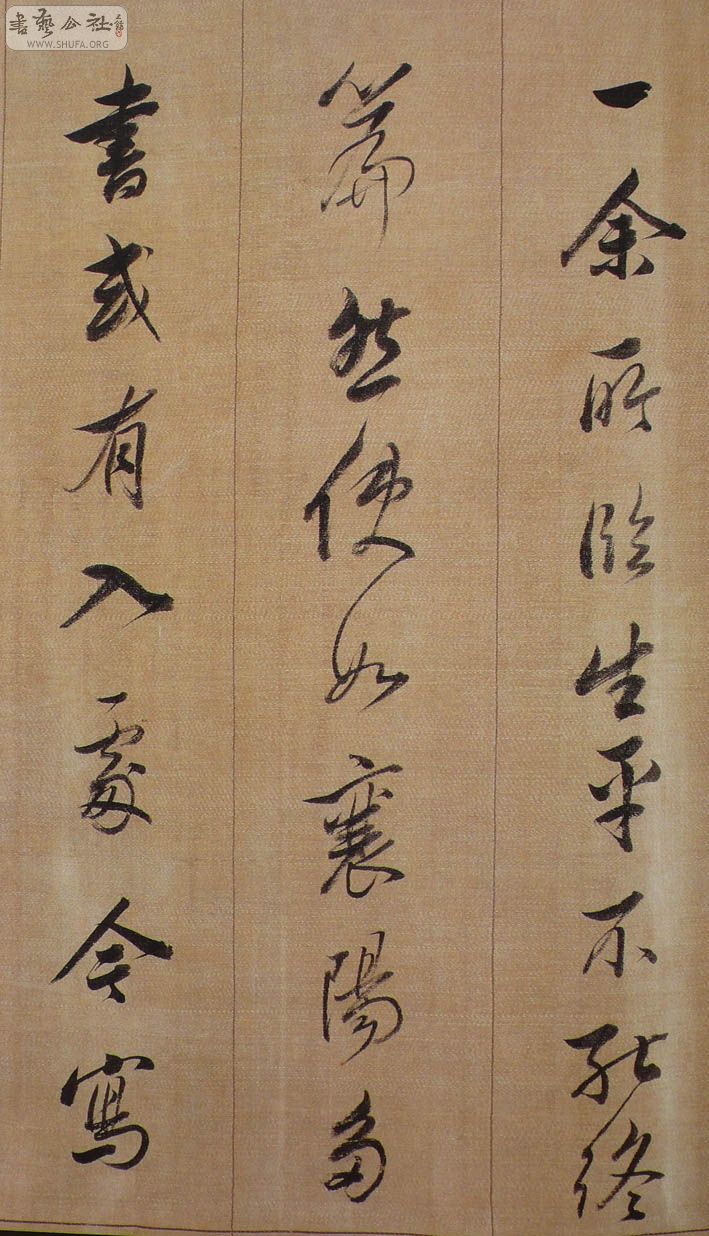 一余所臨生平不能終
篇然使如襄陽多
書或有入處今寫
書藝公社
WWW.SHUFA.ORG